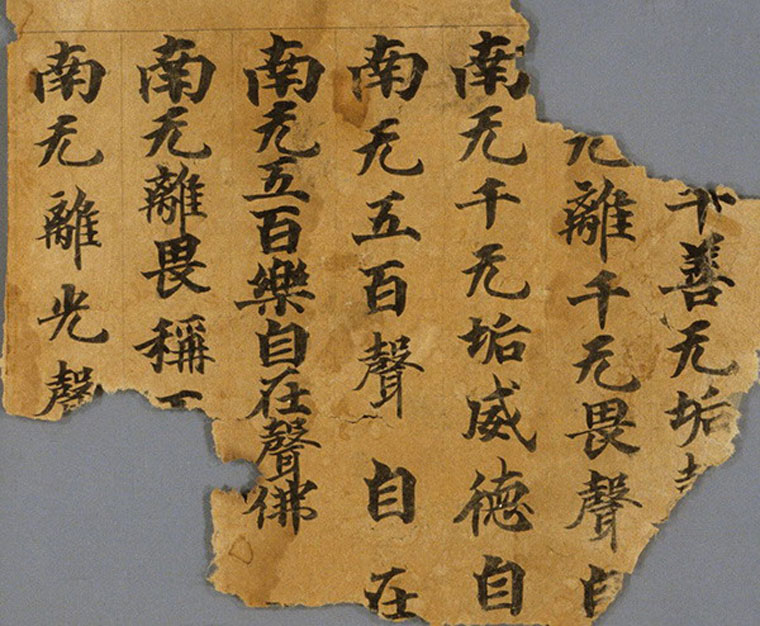 千善无垢
无離千无畏聲自
南无千无垢威德自
南无五百聲自在
南无五百樂自在聲佛
南无離畏稱
南无離光聲